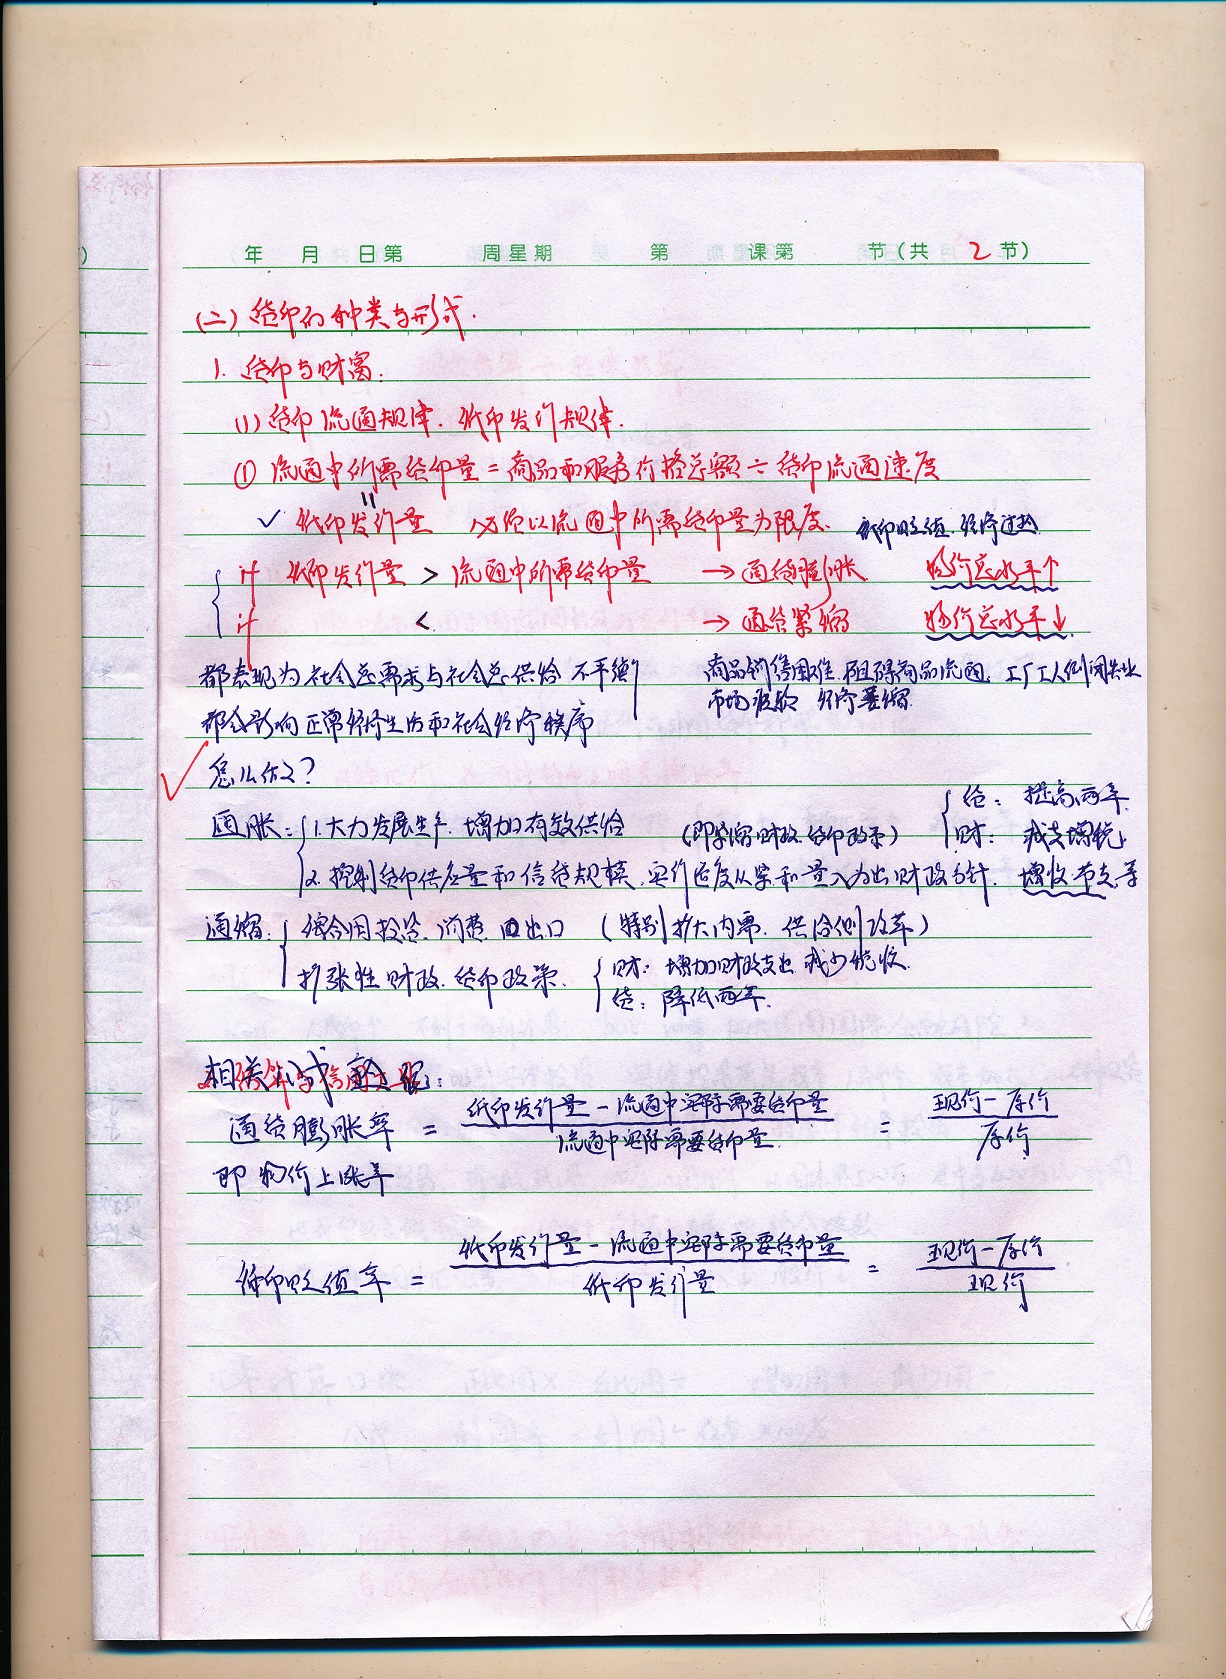 年 月 日第 周星期 第 课第 节(共 2 节)
(二) 货币的种类与形式.
1. 货币与财富:
(1) 货币流通规律. 纸币发行规律.
① 流通中所需货币量 = 商品和服务价格总额 ÷ 货币流通速度
=
✓ 纸币发行量 必须以流通中所需货币量为限度. 纸币贬值 经济过热
if 纸币发行量 > 流通中所需货币量 → 通货膨胀 物价总水平↑
if < → 通货紧缩 物价总水平↓
都表现为社会总需求与社会总供给 不平衡 商品销售困难. 阻碍商品流通. 工厂工人倒闭失业
市场疲软 经济萎缩.
都会影响正常经济生活和社会经济秩序
✓ 怎么做?
货: 提高两率.
通胀: 1. 大力发展生产. 增加有效供给 (即紧缩财政. 货币政策) 财: 减支增税
2. 控制货币供应量和信贷规模. 实行适度从紧和量入为出财政方针. 增收节支 等
通缩: 综合用投资. 消费 出口 (特别扩大内需. 供给侧改革)
扩张性财政. 货币政策. 财: 增加财政支出 减少税收
货: 降低两率.
相关公式
通货膨胀率 = 纸币发行量 - 流通中实际需要货币量 / 流通中实际需要货币量 = 现价 - 原价 / 原价
即物价上涨率
纸币贬值率 = 纸币发行量 - 流通中实际需要货币量 / 纸币发行量 = 现价 - 原价 / 现价